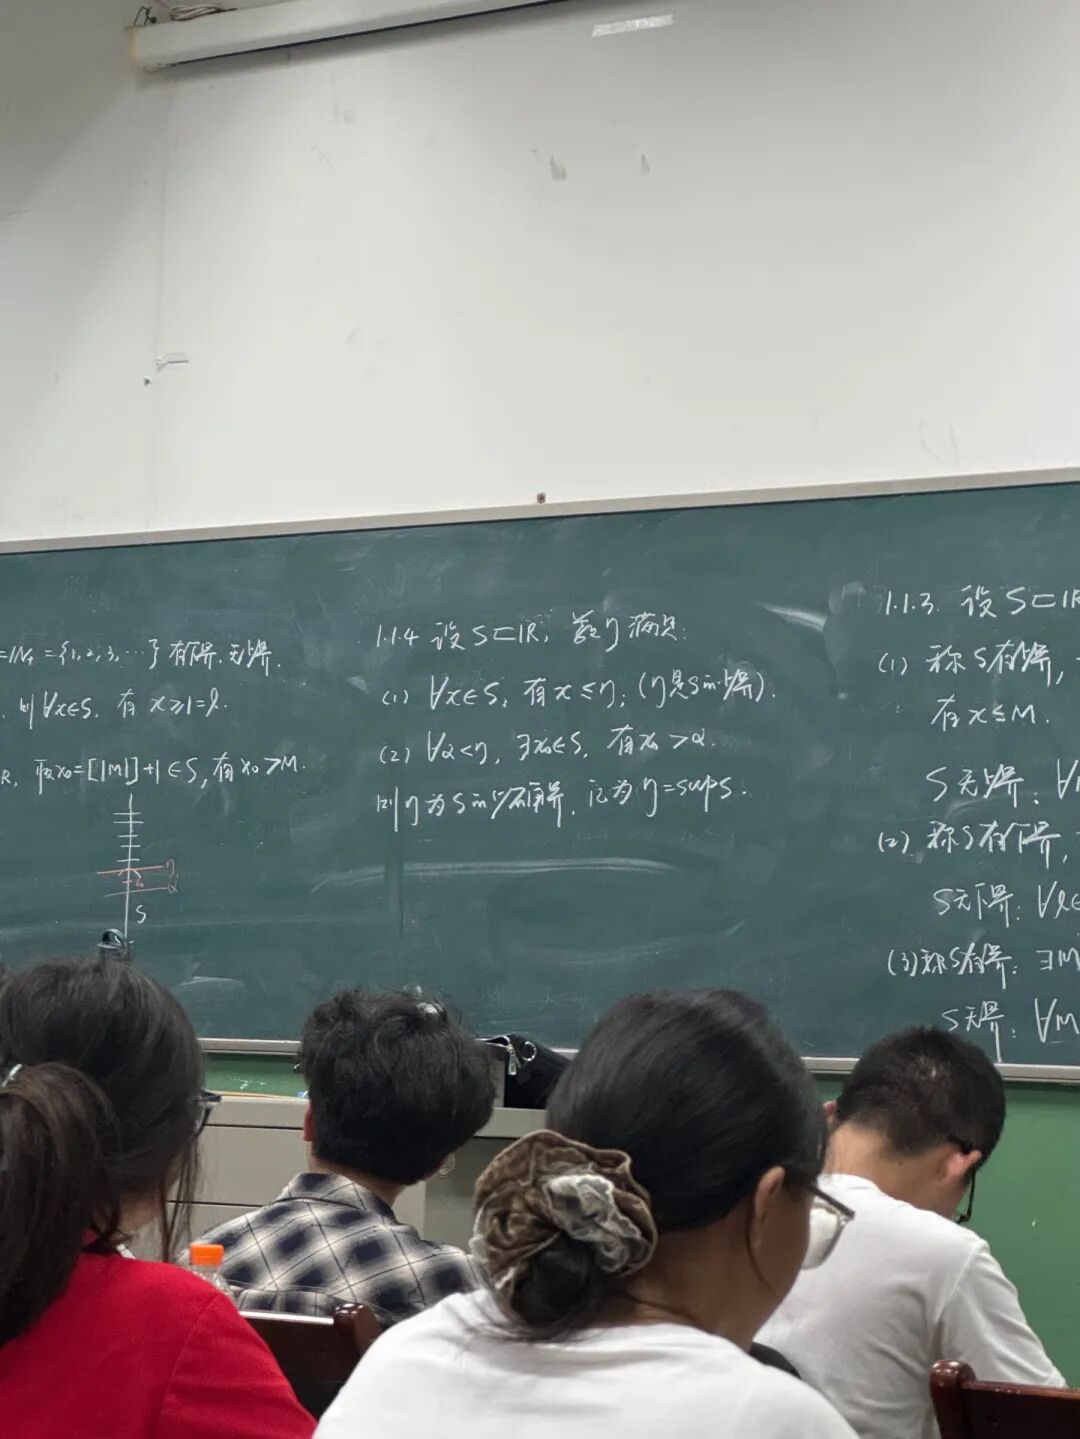 =IN₊={1,2,3,…}有下界,无上界.
则∀x∈S, 有 x⩾1=l.
R, 取x₀=[|M|]+1∈S,有x₀>M.
η
α
S
1.1.4 设S⊂IR, 若η满足:
(1) ∀x∈S, 有x≤η; (η是S的上界).
(2) ∀α<η, ∃x₀∈S, 有x₀>α.
则η为S的上确界, 记为η=supS.
1.1.3. 设S⊂IR
(1) 称S有上界,
有x≤M.
S无上界: ∀M
(2) 称S有下界,
S无下界: ∀l∈
(3) 称S有界: ∃M
S无界: ∀M